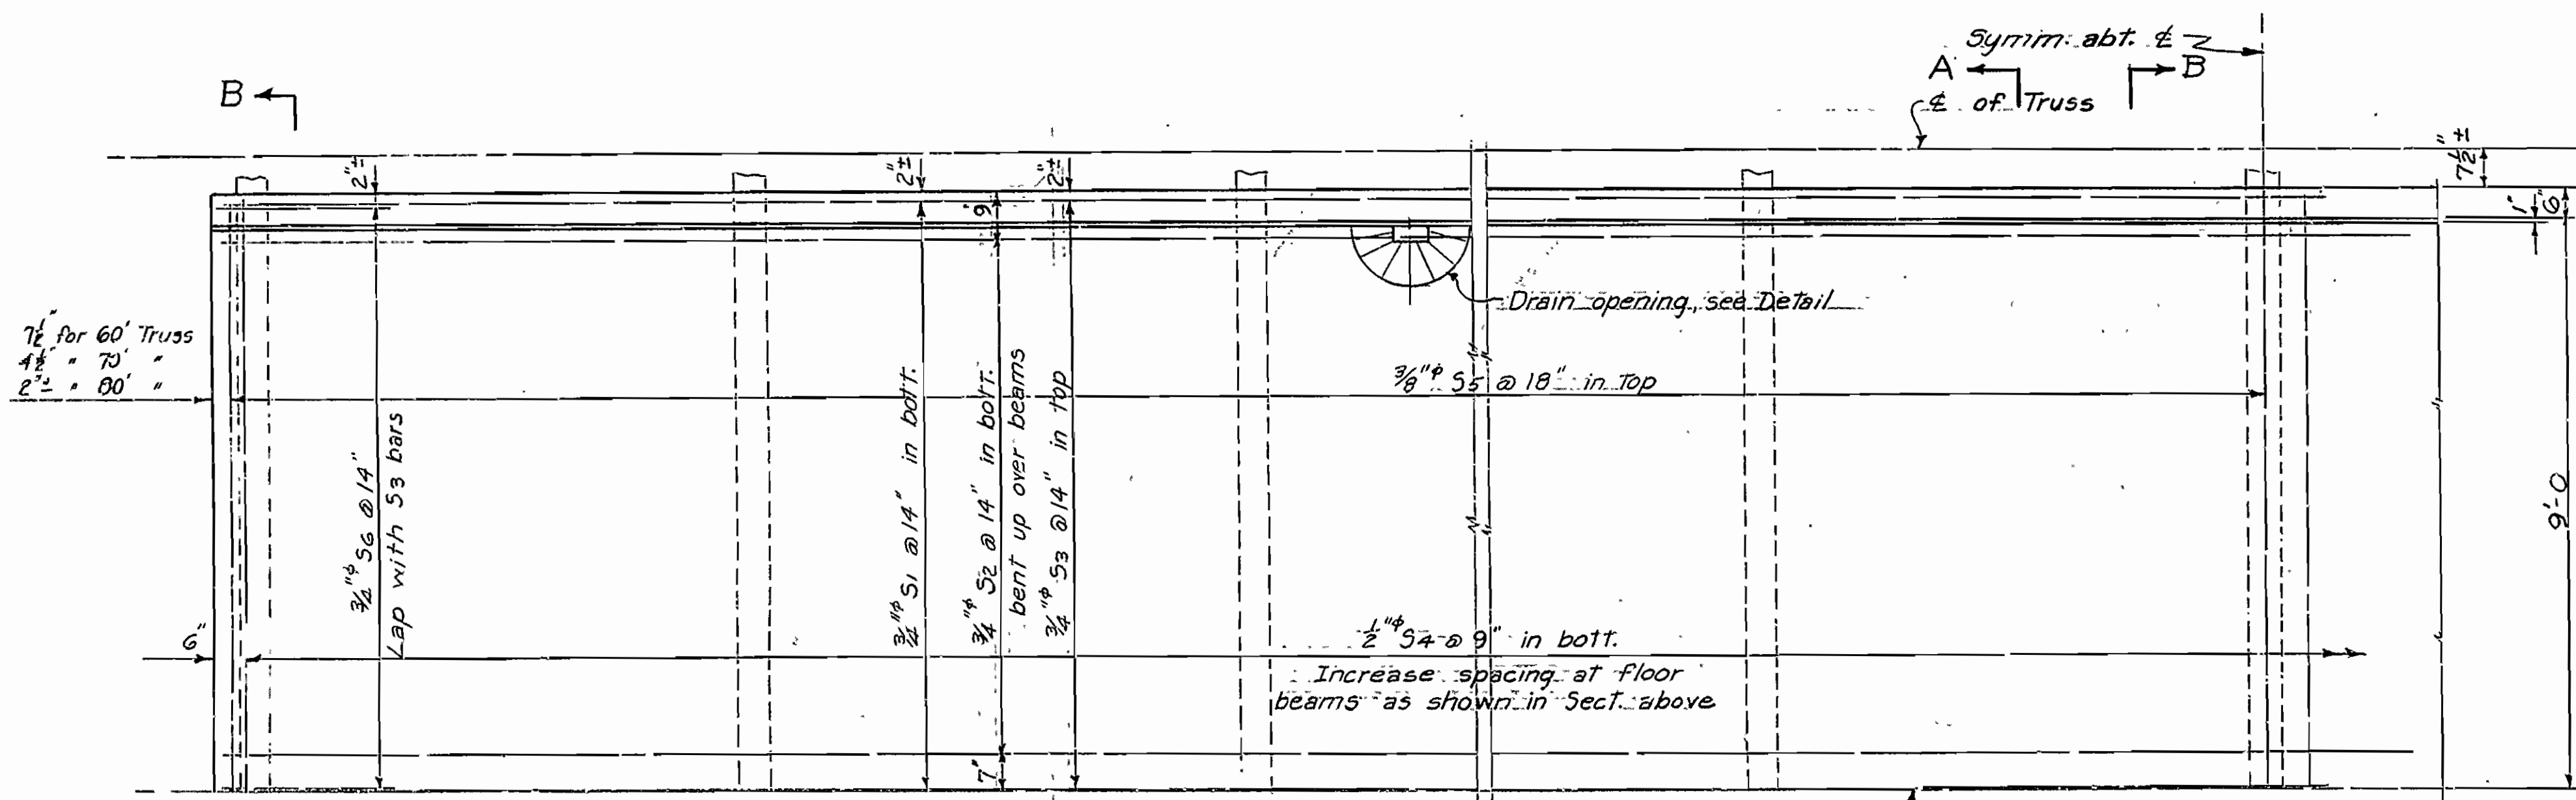 Symm. abt. ℄
B
A
B
℄ of Truss
2"±
2"±
9"
2"±
7½"±
1"
6"
Drain opening, see Detail
7½" for 60' Truss
4½" " 70' "
2"± " 80' "
3/8"φ S5 @ 18" in Top
3/4"φ S6 @ 14"
Lap with S3 bars
3/4"φ S1 @ 14" in bott.
3/4"φ S2 @ 14" in bott.
bent up over beams
3/4"φ S3 @ 14" in top
9'-0
6"
½"φ S4 @ 9" in bott.
Increase spacing at floor
beams as shown in Sect. above
7"